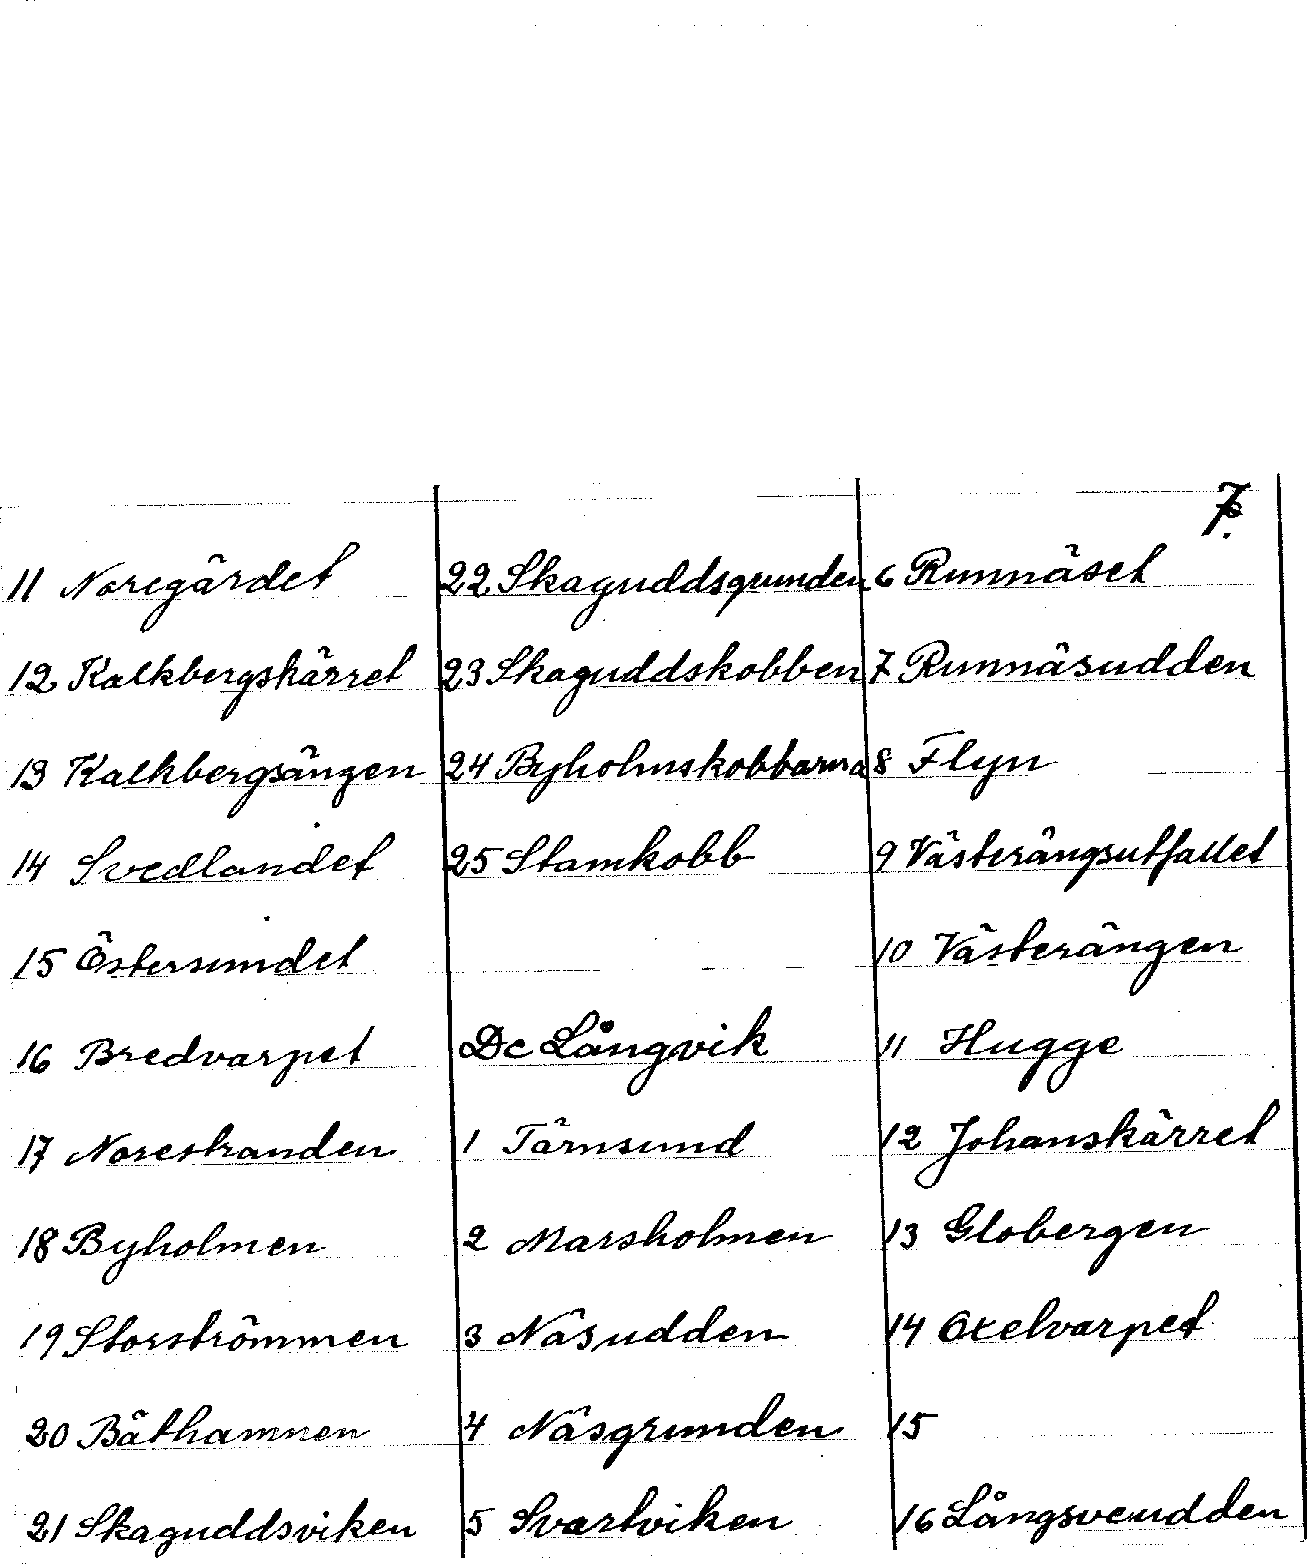 7.
11 Noregärdet
12 Kalkbergskärret
13 Kalkbergsängen
14 Svedlandet
15 Östersundet
16 Bredvarpet
17 Norestranden
18 Byholmen
19 Storströmmen
20 Båthamnen
21 Skaguddsviken
22 Skaguddsgrunden
23 Skaguddskobben
24 Byholmskobbarna
25 Stamkobb
Dc Långvik
1 Tärnsund
2 Marsholmen
3 Näsudden
4 Näsgrunden
5 Svartviken
6 Runnäset
7 Runnäsudden
8 Flyn
9 Västerängsutfallet
10 Västerängen
11 Hugge
12 Johanskärret
13 Globergen
14 Oxelvarpet
15
16 Långsveudden